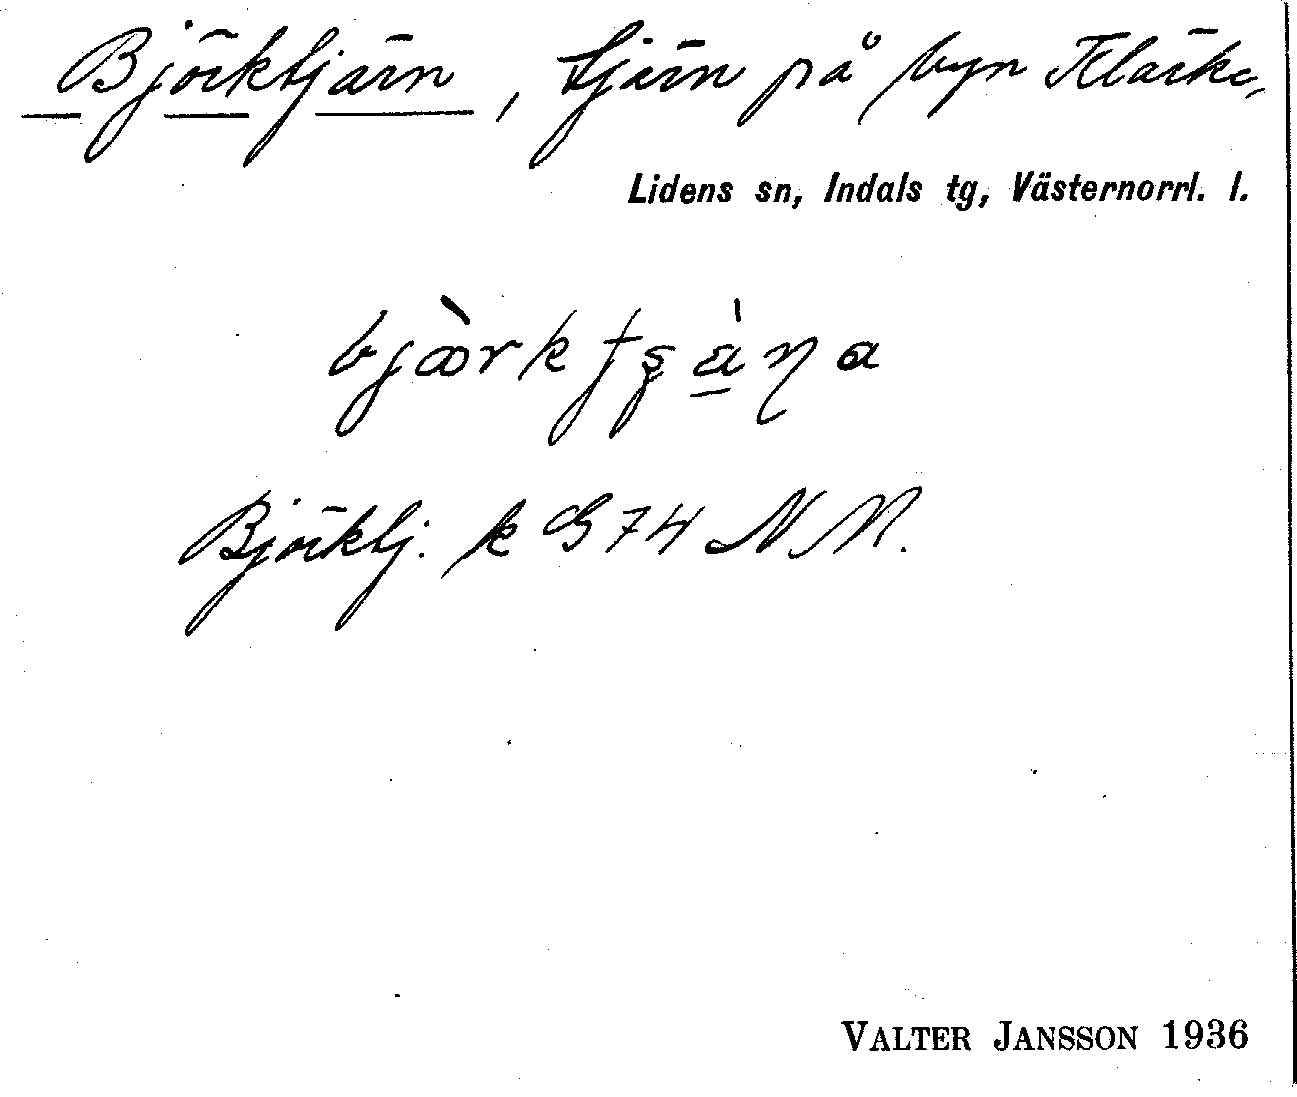 Björktjärn, tjärn på byn Kläcke,
Lidens sn, Indals tg, Västernorrl. l.
Björktj. k G74 NM.
VALTER JANSSON 1936